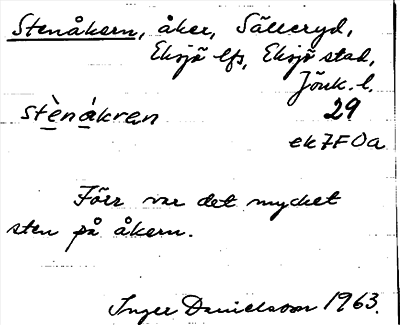 Stenåkern, åker, Sälleryd,
Eksjö lfs, Eksjö stad,
Jönk. l.
stènákren 29
ek7F0a
Förr var det mycket
sten på åkern.
Inger Danielsson 1963.